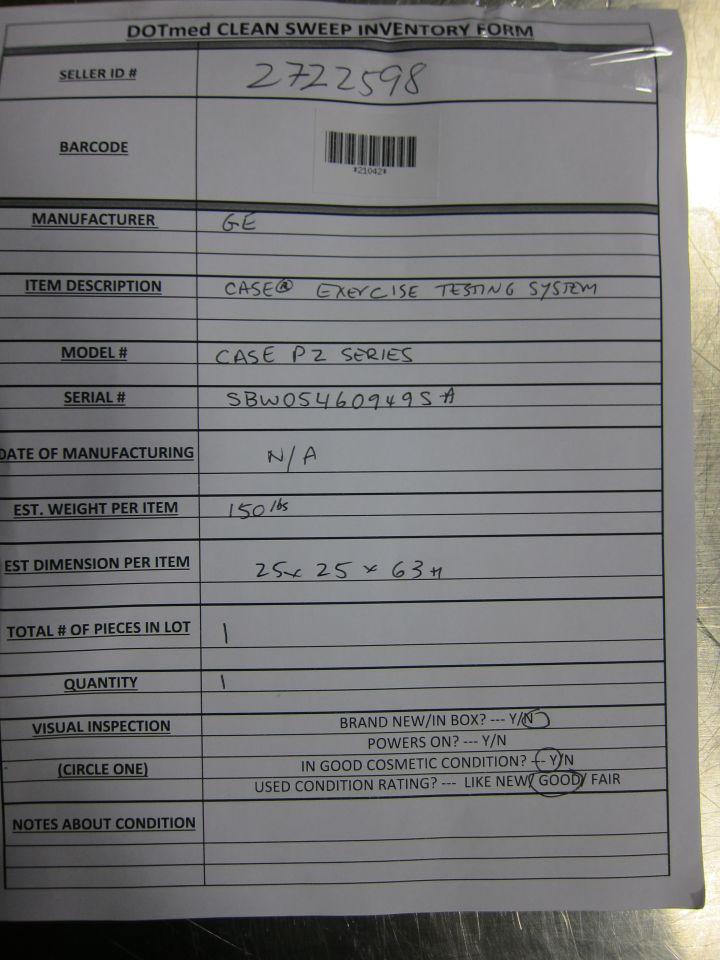 DOTmed CLEAN SWEEP INVENTORY FORM
SELLER ID # 2722598
BARCODE
*21042*
MANUFACTURER GE
ITEM DESCRIPTION CASE® EXERCISE TESTING SYSTEM
MODEL # CASE P2 SERIES
SERIAL # SBW05460949SA
DATE OF MANUFACTURING N/A
EST. WEIGHT PER ITEM 150 lbs
EST DIMENSION PER ITEM 25 x 25 x 63 H
TOTAL # OF PIECES IN LOT 1
QUANTITY 1
VISUAL INSPECTION BRAND NEW/IN BOX? --- Y/N
POWERS ON? --- Y/N
(CIRCLE ONE) IN GOOD COSMETIC CONDITION? --- Y/N
USED CONDITION RATING? --- LIKE NEW/ GOOD/ FAIR
NOTES ABOUT CONDITION